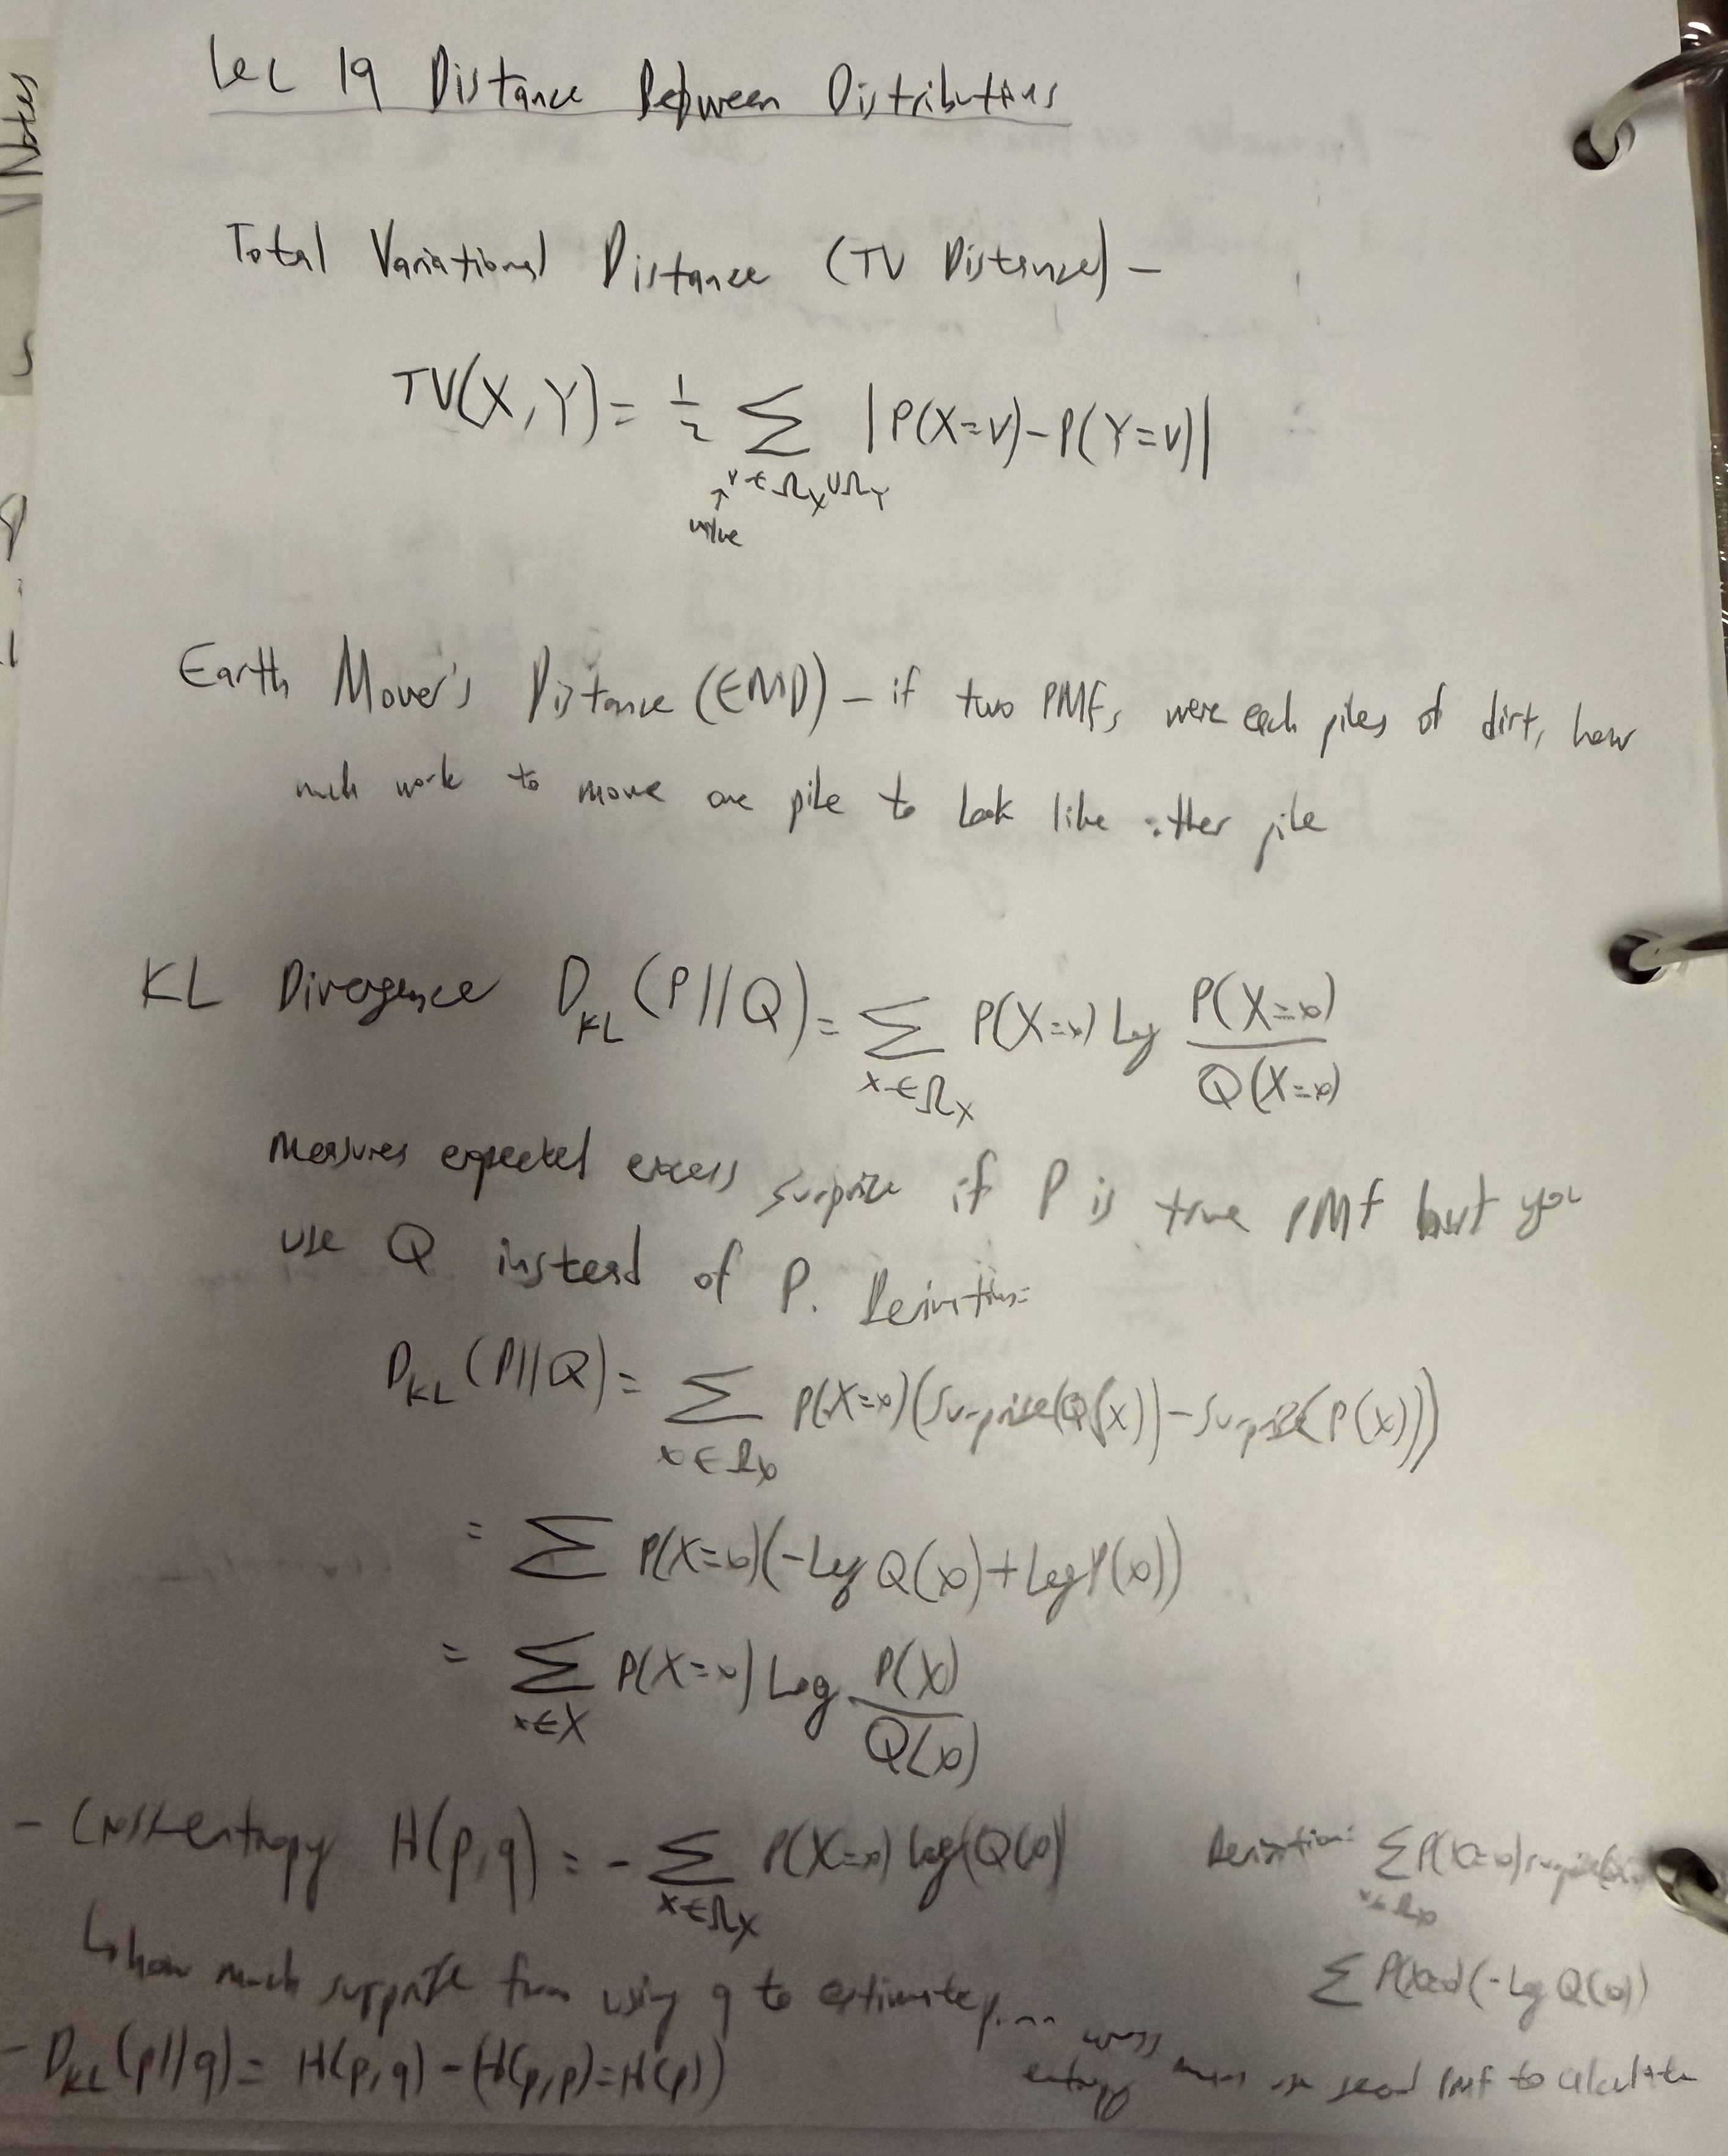 Notes
Lec 19 Distance Between Distributions
Total Variational Distance (TV Distance) -
TV(X, Y) = 1/2 Σ |P(X=v) - P(Y=v)|
v ∈ Ω_X ∪ Ω_Y
↑
value
Earth Mover's Distance (EMD) - if two PMFs were each piles of dirt, how
much work to move one pile to look like other pile
KL Divergence D_KL (P||Q) = Σ P(X=x) Log P(X=x) / Q(X=x)
x ∈ Ω_X
Measures expected excess surprise if P is true PMF but you
use Q instead of P. Derivation:
D_KL (P||Q) = Σ P(X=x)(Surprise(Q(x)) - Surprise(P(x)))
x ∈ Ω_x
= Σ P(X=x)(-Log Q(x) + Log P(x))
= Σ P(X=x) Log P(x) / Q(x)
x ∈ X
- Cross entropy H(p,q) = - Σ P(X=x) log(Q(x)
x ∈ Ω_X
Derivation: Σ P(X=x) surprise
x ∈ Ω_x
Σ P(X=x)(-Log Q(x))
↳ how much surprise from using q to estimate p...
cross entropy means use second PMF to calculate
- D_KL (p||q) = H(p,q) - (H(p,p) = H(p))